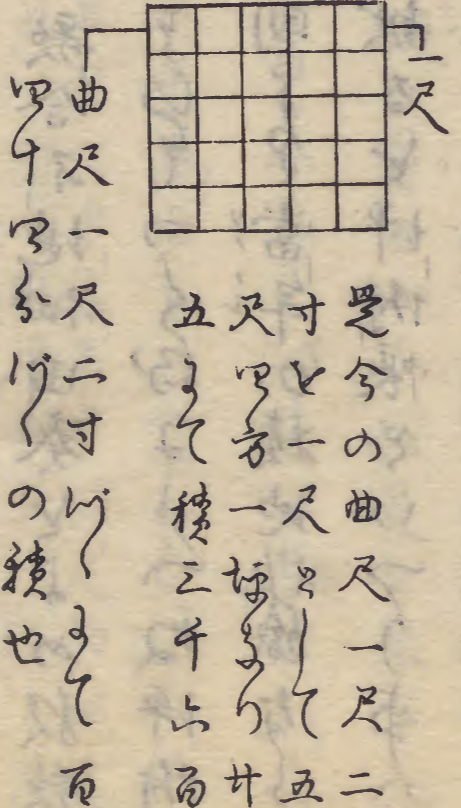 一尺
是今の曲尺一尺二
寸を一尺として五
尺四方一坪なり廿
五にて積三千六百
曲尺一尺二寸づゝにて百
四十四分づゝの積也